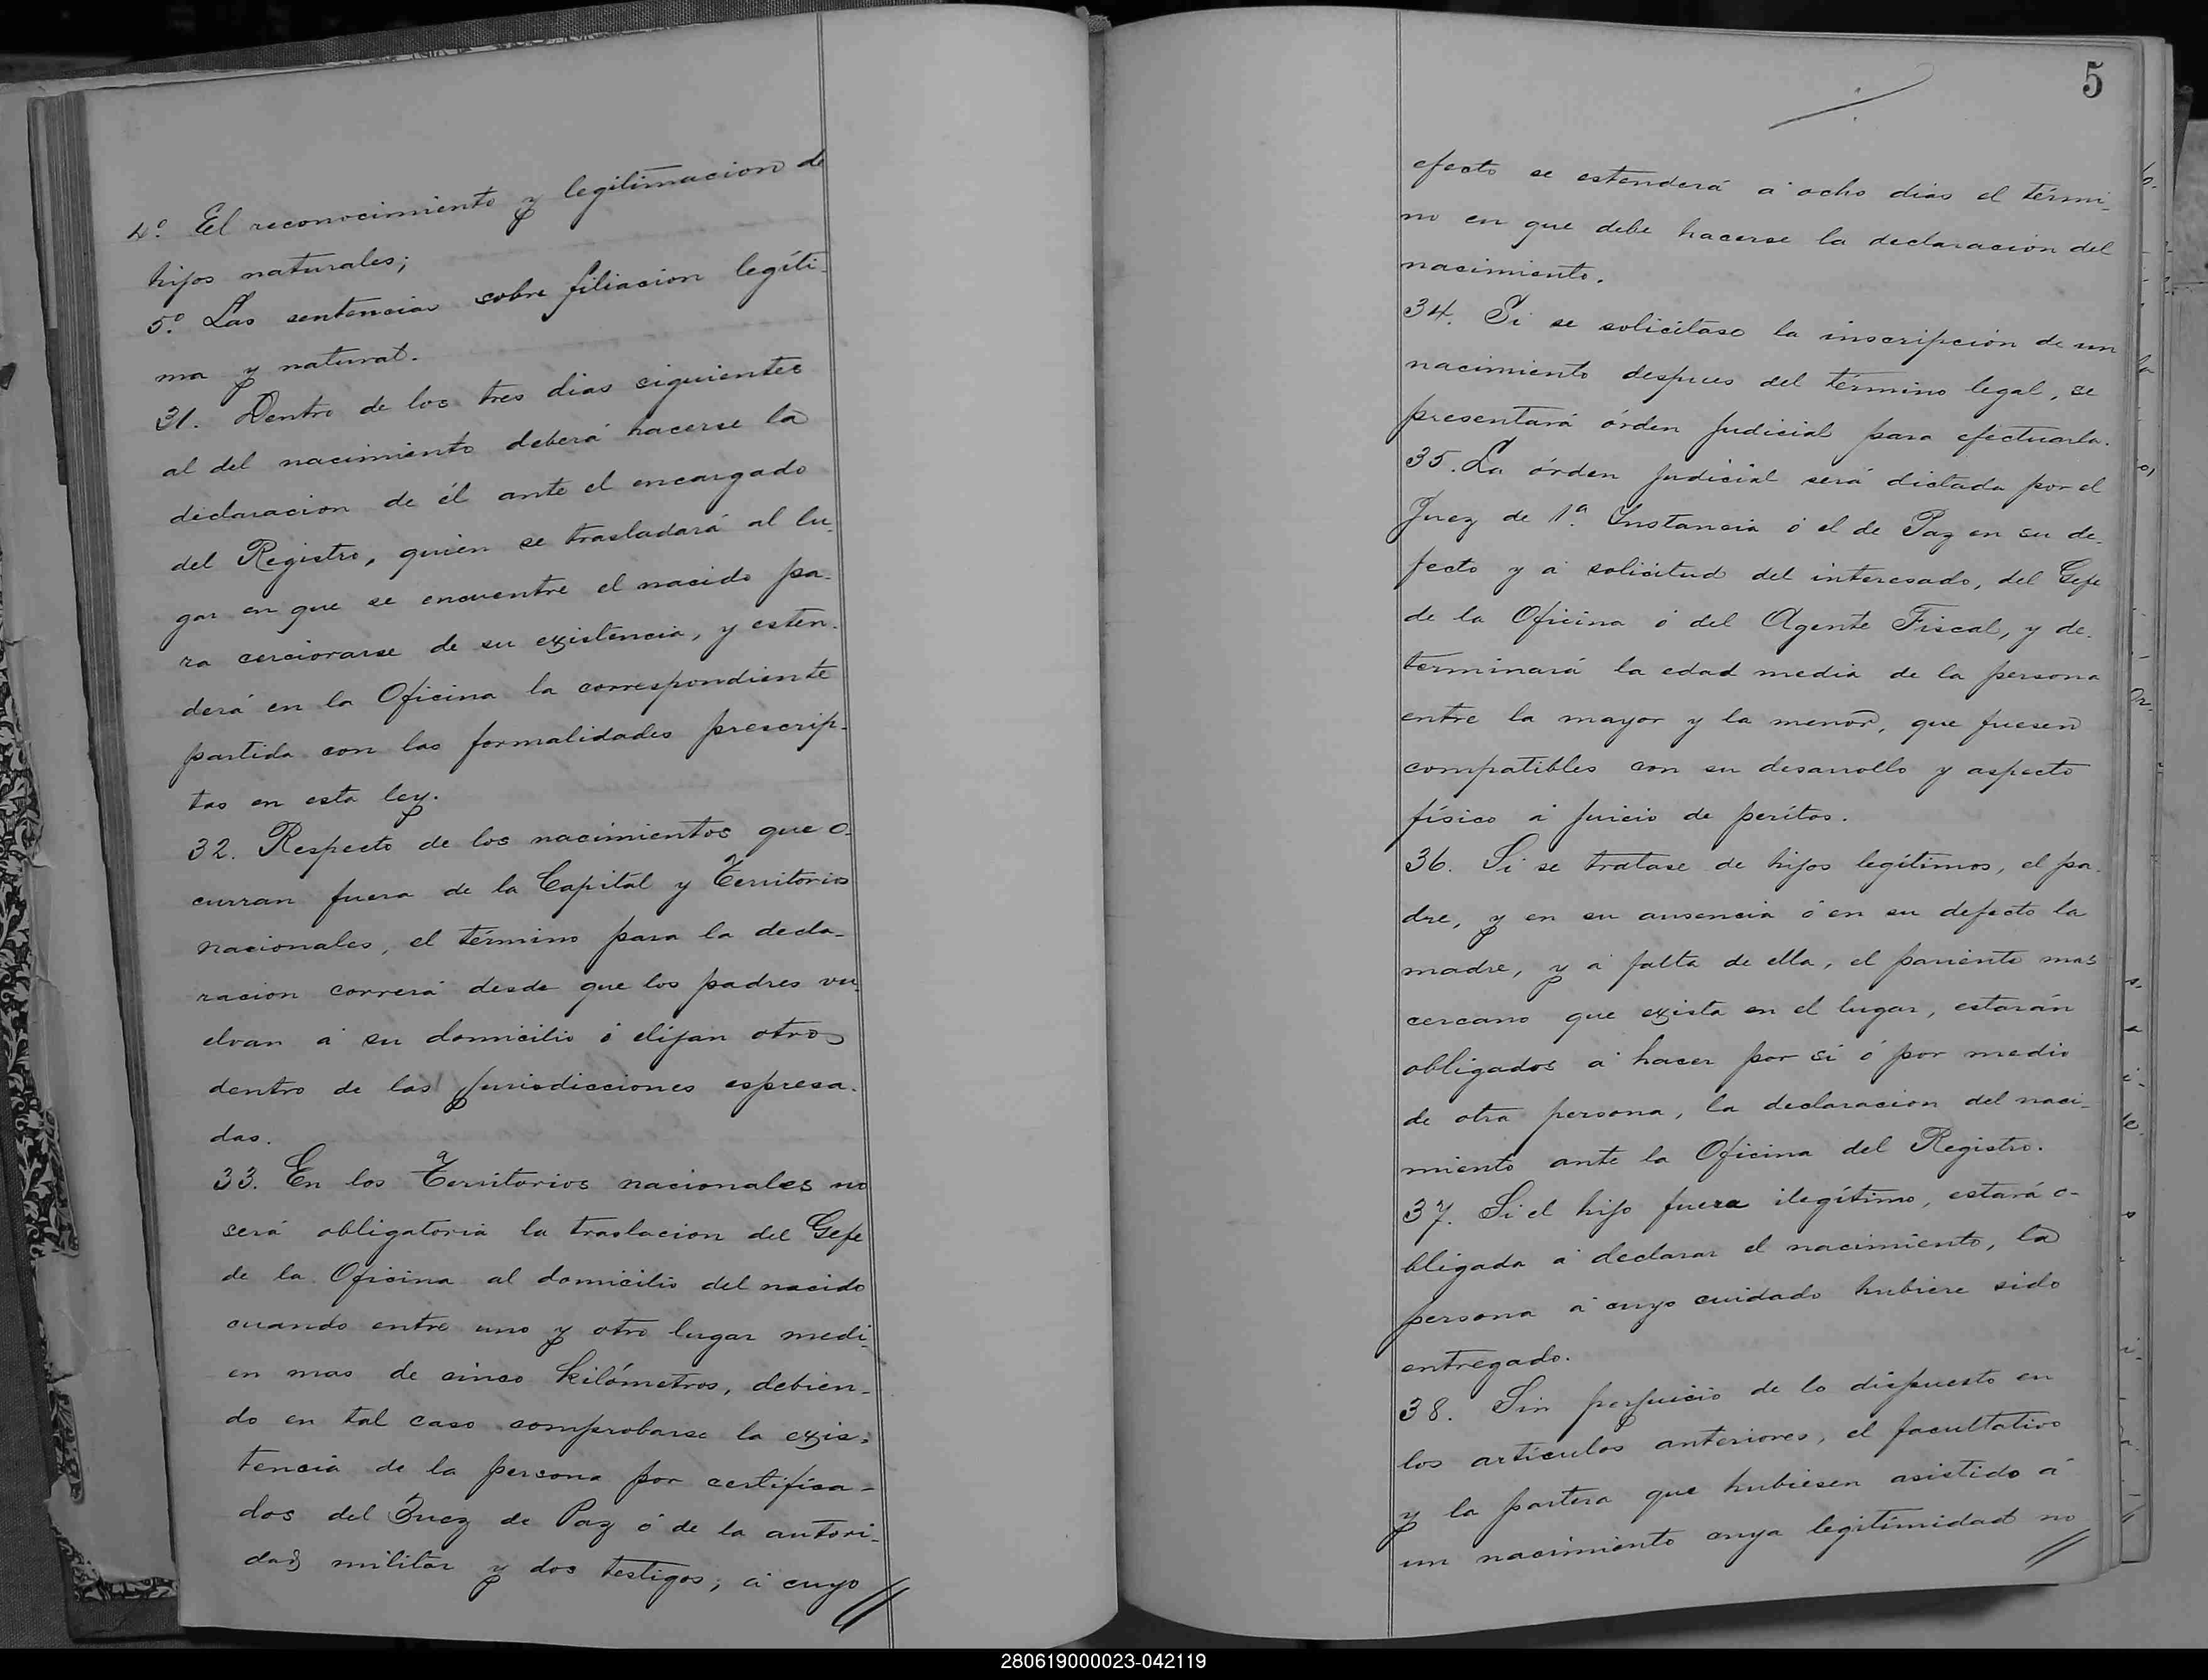 4º El reconocimiento y legitimacion de
hijos naturales;
5º Las sentencias sobre filiacion legíti-
ma y natural.
31. Dentro de los tres dias siguientes
al del nacimiento deberá hacerse la
declaracion de él ante el encargado
del Registro, quien se trasladará al lu-
gar en que se encuentre el nacido pa-
ra cerciorarse de su existencia, y esten-
derá en la Oficina la correspondiente
partida con las formalidades prescrip-
tas en esta ley.
32. Respecto de los nacimientos que o-
curran fuera de la Capital y Territorios
nacionales, el término para la decla-
racion correrá desde que los padres vu-
elvan á su domicilio ó elijan otro
dentro de las jurisdicciones espresa-
das.
33. En los Territorios nacionales no
será obligatoria la traslacion del Gefe
de la Oficina al domicilio del nacido
cuando entre uno y otro lugar medi-
en mas de cinco kilómetros, debien-
do en tal caso comprobarse la exis-
tencia de la persona por certifica-
dos del Juez de Paz ó de la autori-
dad militar y dos testigos, á cuyo
5
efecto se estenderá á ocho dias el térmi-
no en que debe hacerse la declaracion del
nacimiento.
34. Si se solicitase la inscripcion de un
nacimiento despues del término legal, se
presentará órden judicial para efectuarla.
35. La órden judicial será dictada por el
Juez de 1ª Instancia ó el de Paz en su de-
fecto y á solicitud del interesado, del Gefe
de la Oficina ó del Agente Fiscal, y de-
terminará la edad media de la persona
entre la mayor y la menor, que fuesen
compatibles con su desarrollo y aspecto
físico á juicio de peritos.
36. Si se tratase de hijos legítimos, el pa-
dre, y en su ausencia ó en su defecto la
madre, y á falta de ella, el pariente mas
cercano que exista en el lugar, estarán
obligados á hacer por si ó por medio
de otra persona, la declaracion del naci-
miento ante la Oficina del Registro.
37. Si el hijo fuera ilegítimo, estará o-
bligada á declarar el nacimiento, la
persona á cuyo cuidado hubiere sido
entregado.
38. Sin perjuicio de lo dispuesto en
los artículos anteriores, el facultativo
y la partera que hubiesen asistido á
un nacimiento cuya legitimidad no
280619000023-042119